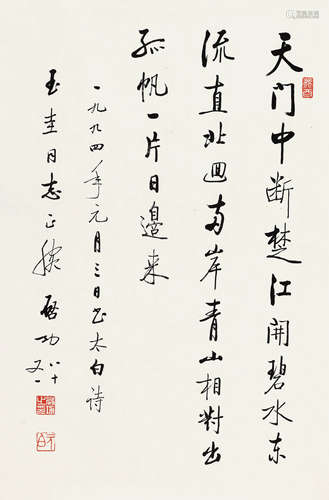 天门中断楚江開碧水东
流直北迴两岸青山相對出
孤帆一片日邊来
一九九四年元月三日书太白诗
玉圭同志正腕 啓功 八十又一